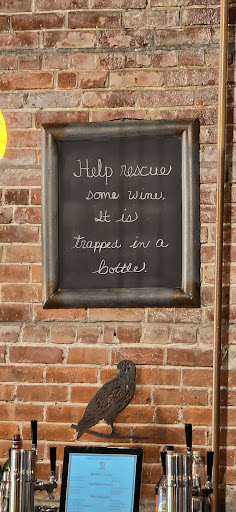 Help rescue
some wine,
It is
trapped in a
bottle.